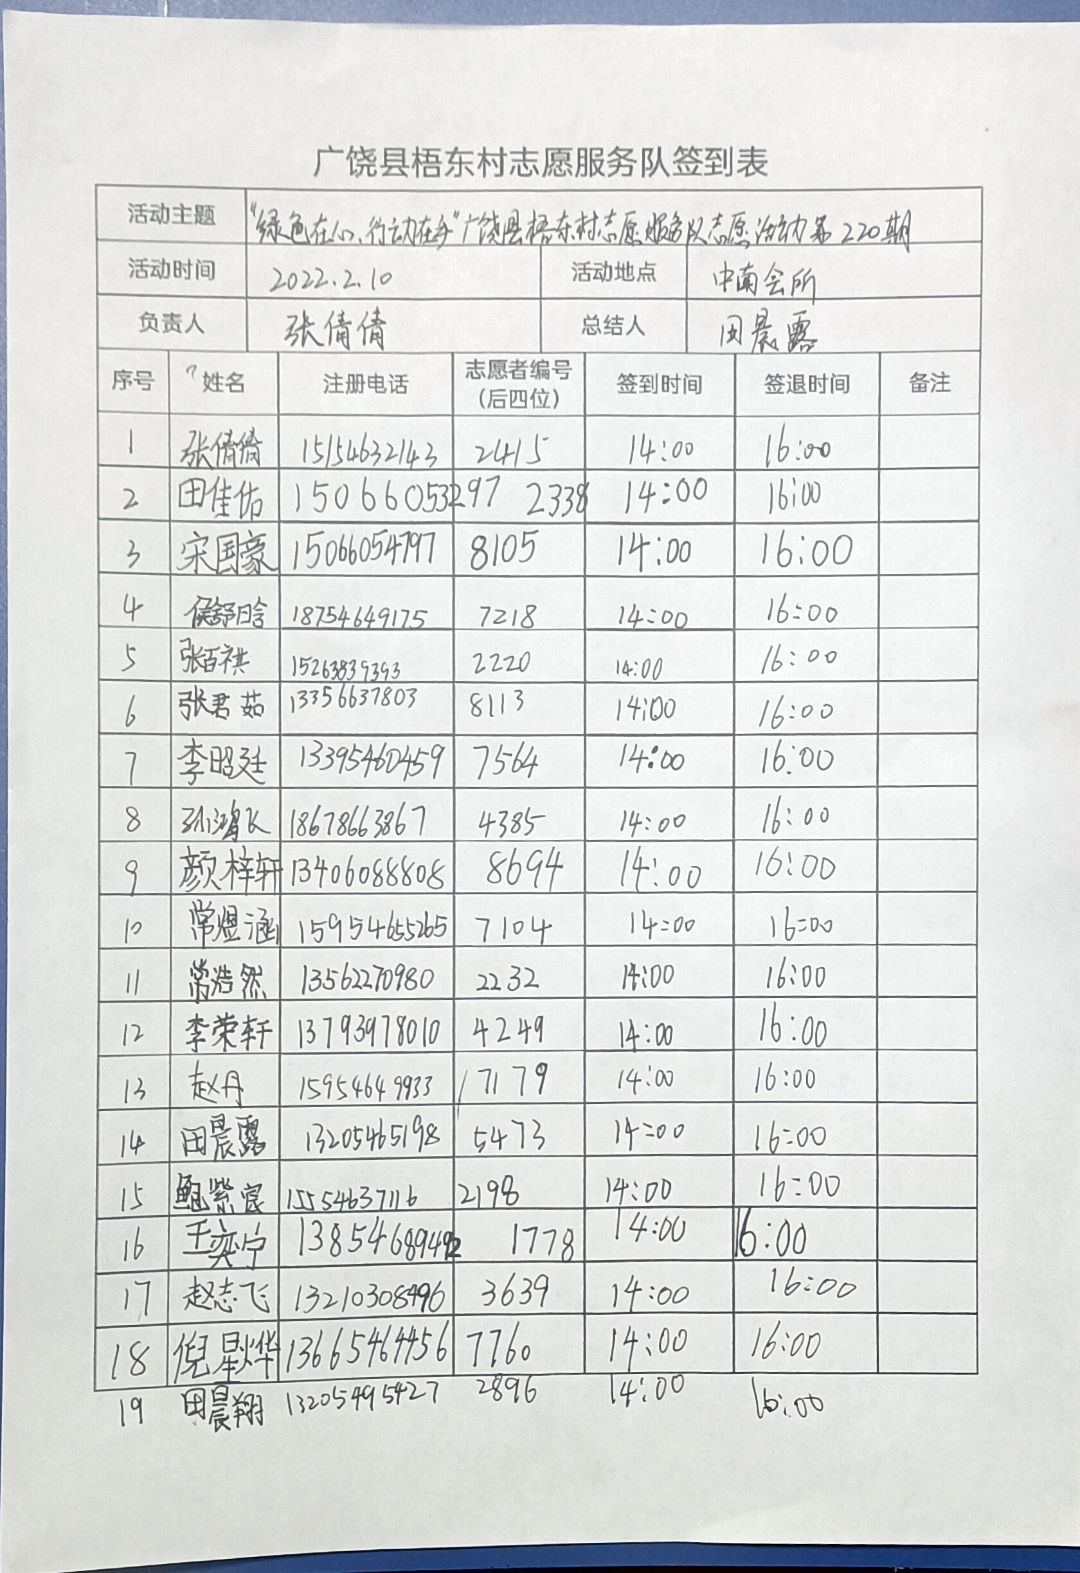 广饶县梧东村志愿服务队签到表
活动主题 "绿色在心、行动在手"广饶县梧东村志愿服务队志愿活动第220期
活动时间 2022.2.10 活动地点 中南会所
负责人 张倩倩 总结人 田晨露
序号 姓名 注册电话 志愿者编号(后四位) 签到时间 签退时间 备注
1 张倩倩 15154632143 2415 14:00 16:00
2 田佳佑 15066053297 2338 14:00 16:00
3 宋国豪 15066054797 8105 14:00 16:00
4 侯舒晗 18754649175 7218 14:00 16:00
5 张百祺 15263839393 2220 14:00 16:00
6 张君茹 13356637803 8113 14:00 16:00
7 李昭廷 13395460459 7564 14:00 16:00
8 孙鸿飞 18678663867 4385 14:00 16:00
9 颜梓轩 13406088808 8694 14:00 16:00
10 常煜涵 15954655265 7104 14:00 16:00
11 常浩然 13562270980 2232 14:00 16:00
12 李荣轩 13793978010 4249 14:00 16:00
13 赵丹 15954649933 7179 14:00 16:00
14 田晨露 13205465198 5473 14:00 16:00
15 鲍紫宸 15554637116 2198 14:00 16:00
16 王奕宁 1778 14:00 16:00
17 赵志飞 13210308496 3639 14:00 16:00
18 倪星烨 13665464456 7760 14:00 16:00
19 田晨翔 13205495427 2896 14:00 16:00